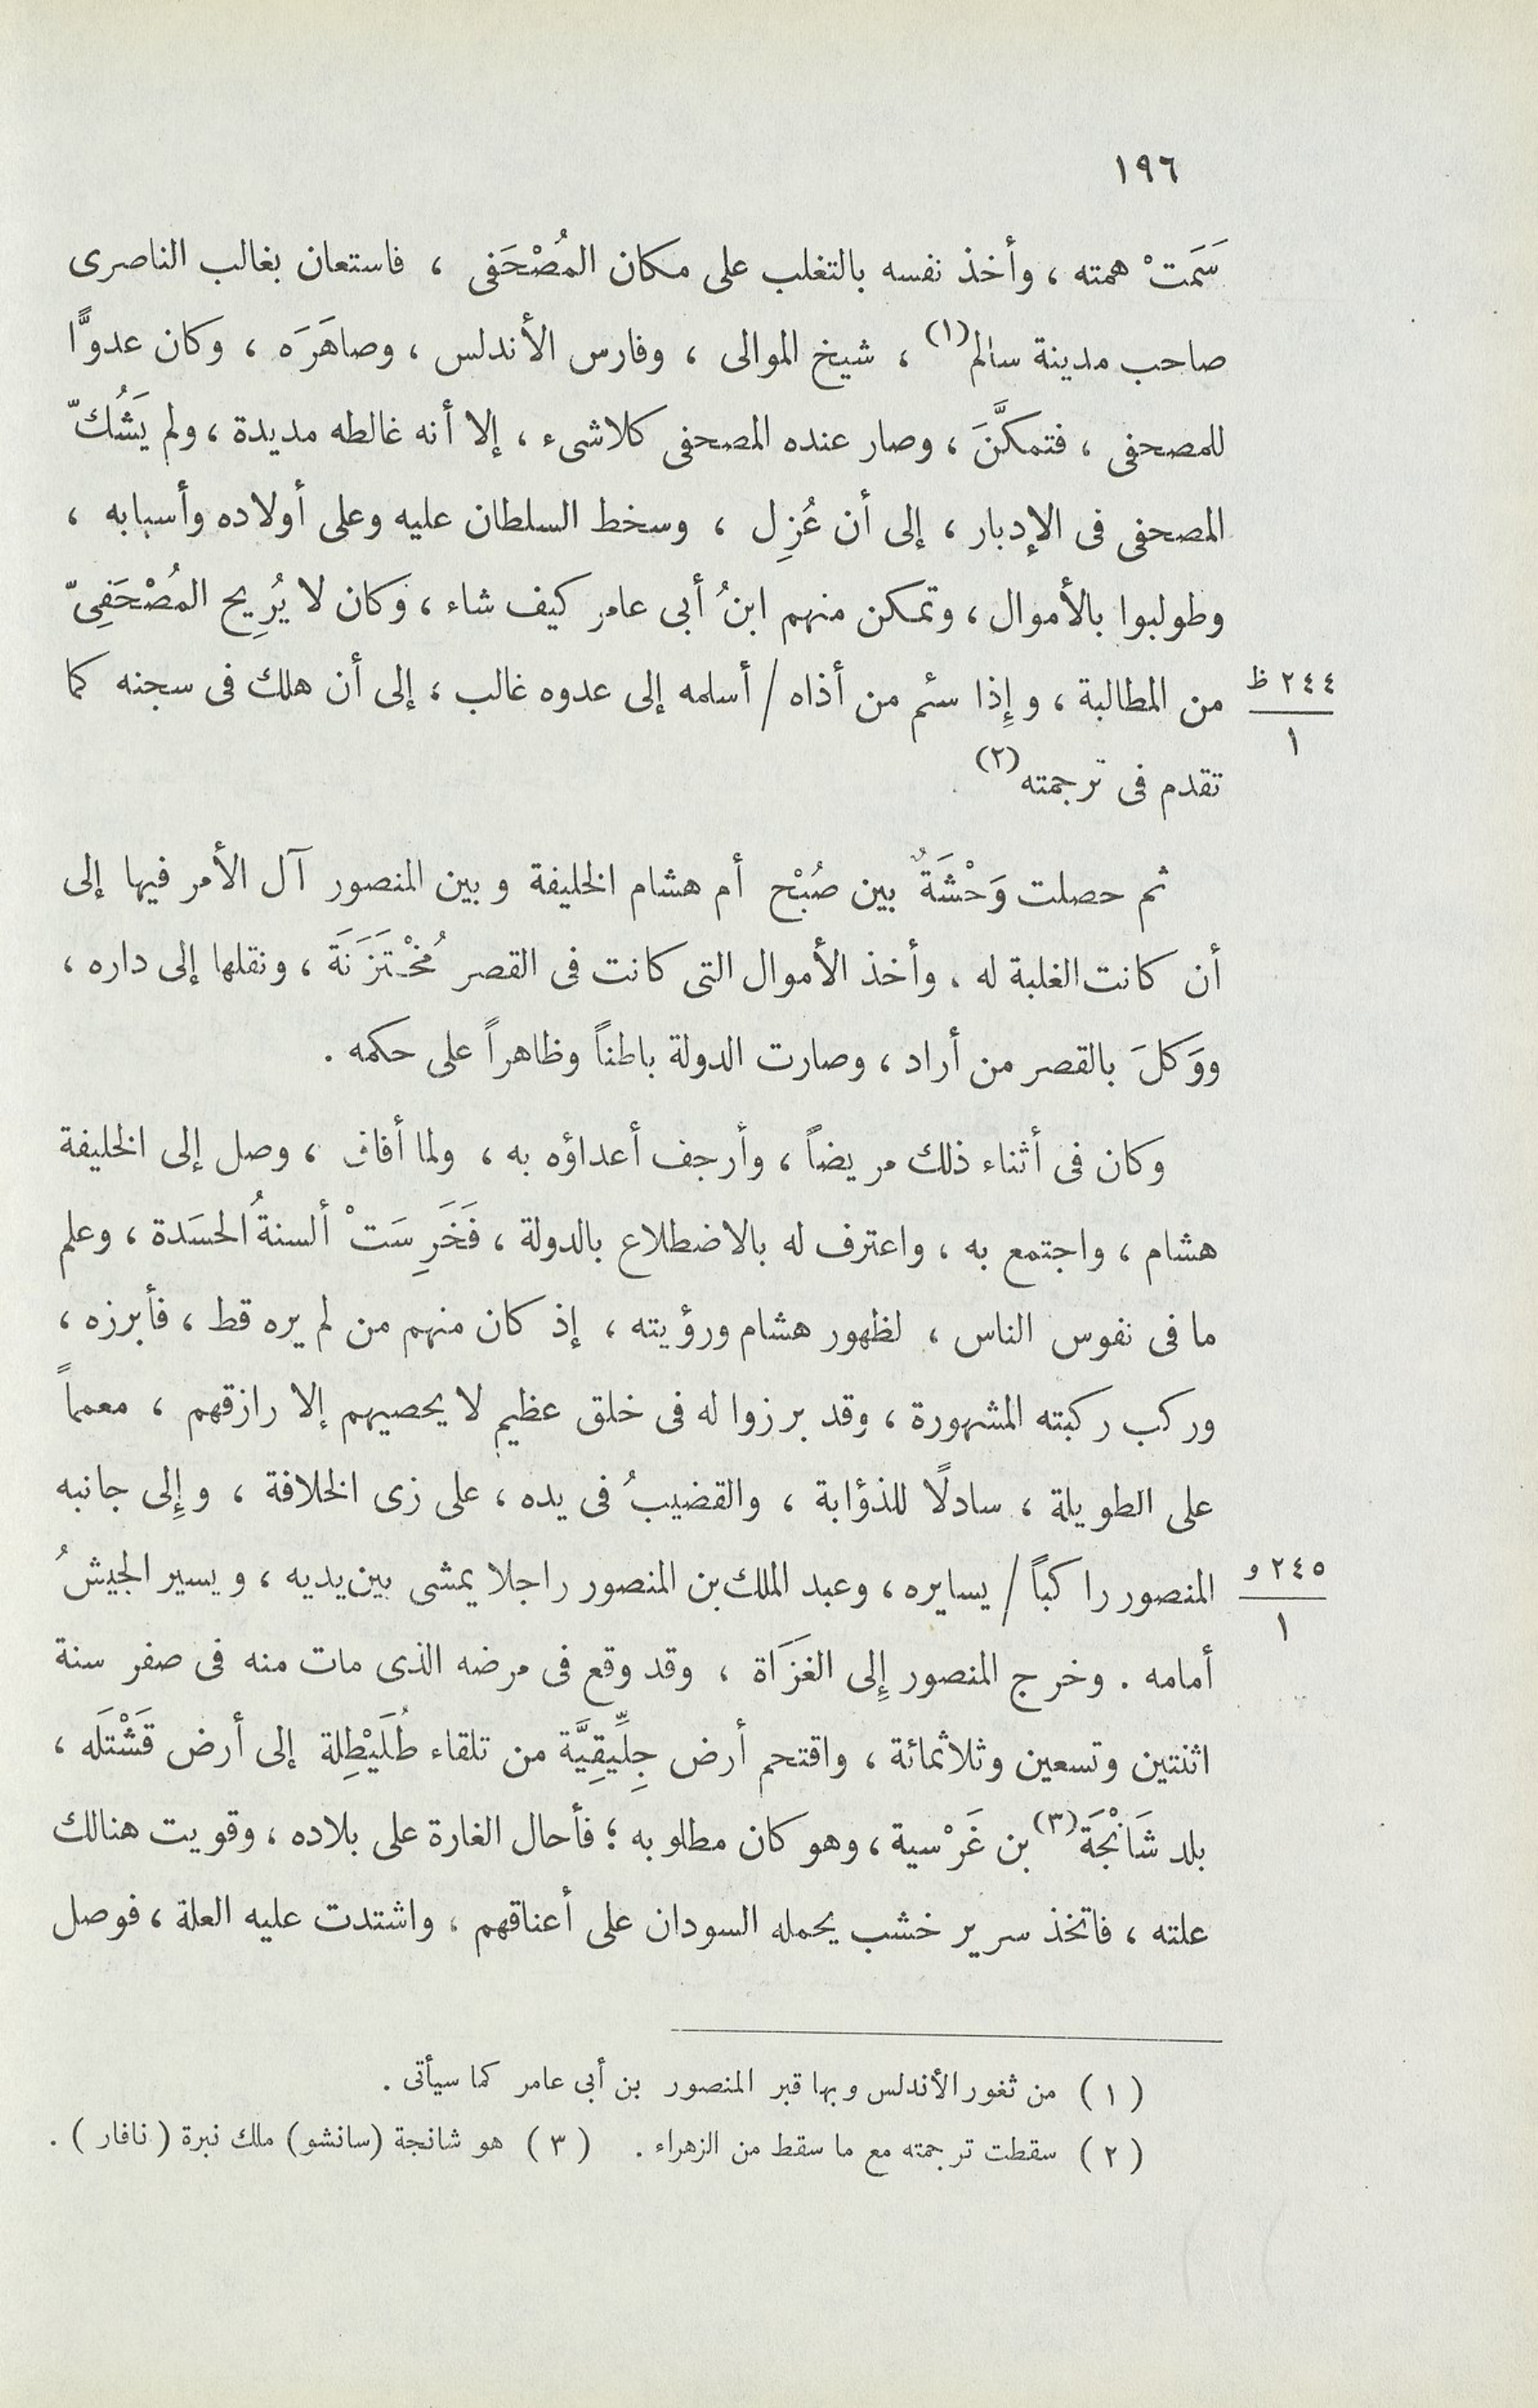 ١٩٦
سَمَتْ همته ، وأخذ نفسه بالتغلب على مكان المُصْحَفى ، فاستعان بغالب الناصرى
صاحب مدينة سالم(١) ، شيخ الموالى ، وفارس الأندلس ، وصاهَرَه ، وكان عدوًّا
للمصحفى ، فتمكنَّ ، وصار عنده المصحفى كلاشىء ، إلا أنه غالطه مديدة ، ولم يَشُكّ
المصحفى فى الإدبار ، إلى أن عُزِل ، وسخط السلطان عليه وعلى أولاده وأسبابه ،
وطولبوا بالأموال ، وتمكن منهم ابنُ أبى عامر كيف شاء ، وكان لا يُرِيح المُصْحَفِىّ
٢٤٤ ظ
١
من المطالبة ، وإِذا سئم من أذاه / أسلمه إلى عدوه غالب ، إلى أن هلك فى سجنه كما
تقدم فى ترجمته(٢) .
ثم حصلت وَحْشَةٌ بين صُبْح أم هشام الخليفة وبين المنصور آل الأمر فيها إلى
أن كانت الغلبة له . وأخذ الأموال التى كانت فى القصر مُخْتَزَنَة ، ونقلها إلى داره ،
ووَكلَ بالقصر من أراد ، وصارت الدولة باطناً وظاهراً على حكمه .
وكان فى أثناء ذلك مريضاً ، وأرجف أعداؤه به ، ولما أفاق ، وصل إلى الخليفة
هشام ، واجتمع به ، واعترف له بالاضطلاع بالدولة ، فَخَرِسَتْ ألسنةُ الحسَدة ، وعلم
ما فى نفوس الناس ، لظهور هشام ورؤيته ، إذ كان منهم من لم يره قط ، فأبرزه ،
وركب ركبته المشهورة ، وقد برزوا له فى خلق عظيم لا يحصيهم إلا رازقهم ، معمماً
على الطويلة ، سادلًا للذؤابة ، والقضيبُ فى يده ، على زى الخلافة ، وإِلى جانبه
٢٤٥ و
١
المنصور راكباً / يسايره ، وعبد الملك بن المنصور راجلا يمشى بين يديه ، ويسير الجيشُ
أمامه . وخرج المنصور إِلى الغَزَاة ، وقد وقع فى مرضه الذى مات منه فى صفر سنة
اثنتين وتسعين وثلاثمائة ، واقتحم أرض جِلِّيقِيَّة من تلقاء طُلَيْطِلة إلى أرض قَشْتَلَه ،
بلد شَانْجَة(٣) بن غَرْسية ، وهو كان مطلوبه ؛ فأحال الغارة على بلاده ، وقويت هنالك
علته ، فاتخذ سرير خشب يحمله السودان على أعناقهم ، واشتدت عليه العلة ، فوصل
( ١ ) من ثغور الأندلس وبها قبر المنصور بن أبى عامر كما سيأتى .
( ٢ ) سقطت ترجمته مع ما سقط من الزهراء . ( ٣ ) هو شانجة (سانشو) ملك نبرة ( نافار ) .